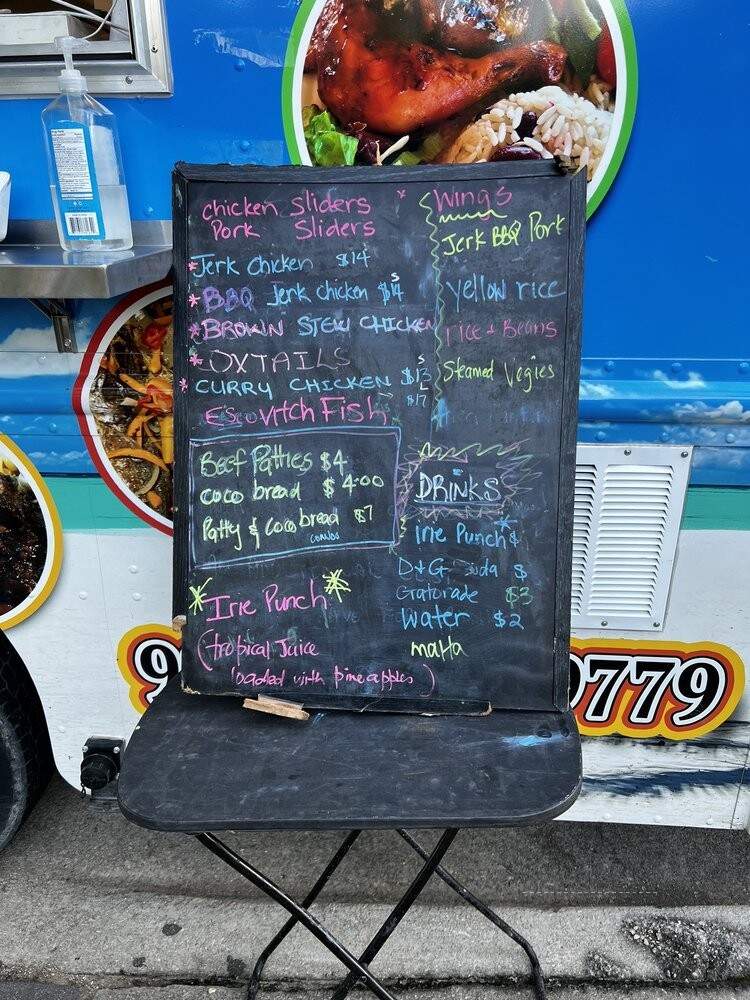 chicken Sliders
Pork Sliders
* Jerk Chicken $14
* BBQ Jerk chicken $14
S
* BROWN STEW CHICKEN
* OXTAILS
* CURRY CHICKEN $13
S
L
$17
Escovitch Fish
Beef Patties $4
coco bread $4.00
Patty & Coco bread $7
combo
* Irie Punch *
(tropical Juice
loaded with pineapples)
* Wings
Jerk BBQ Pork
yellow rice
rice & Beans
Steamed Vegies
DRINKS
Irie Punch $
D&G Soda $
Gatorade $3
Water $2
malta
9
0779